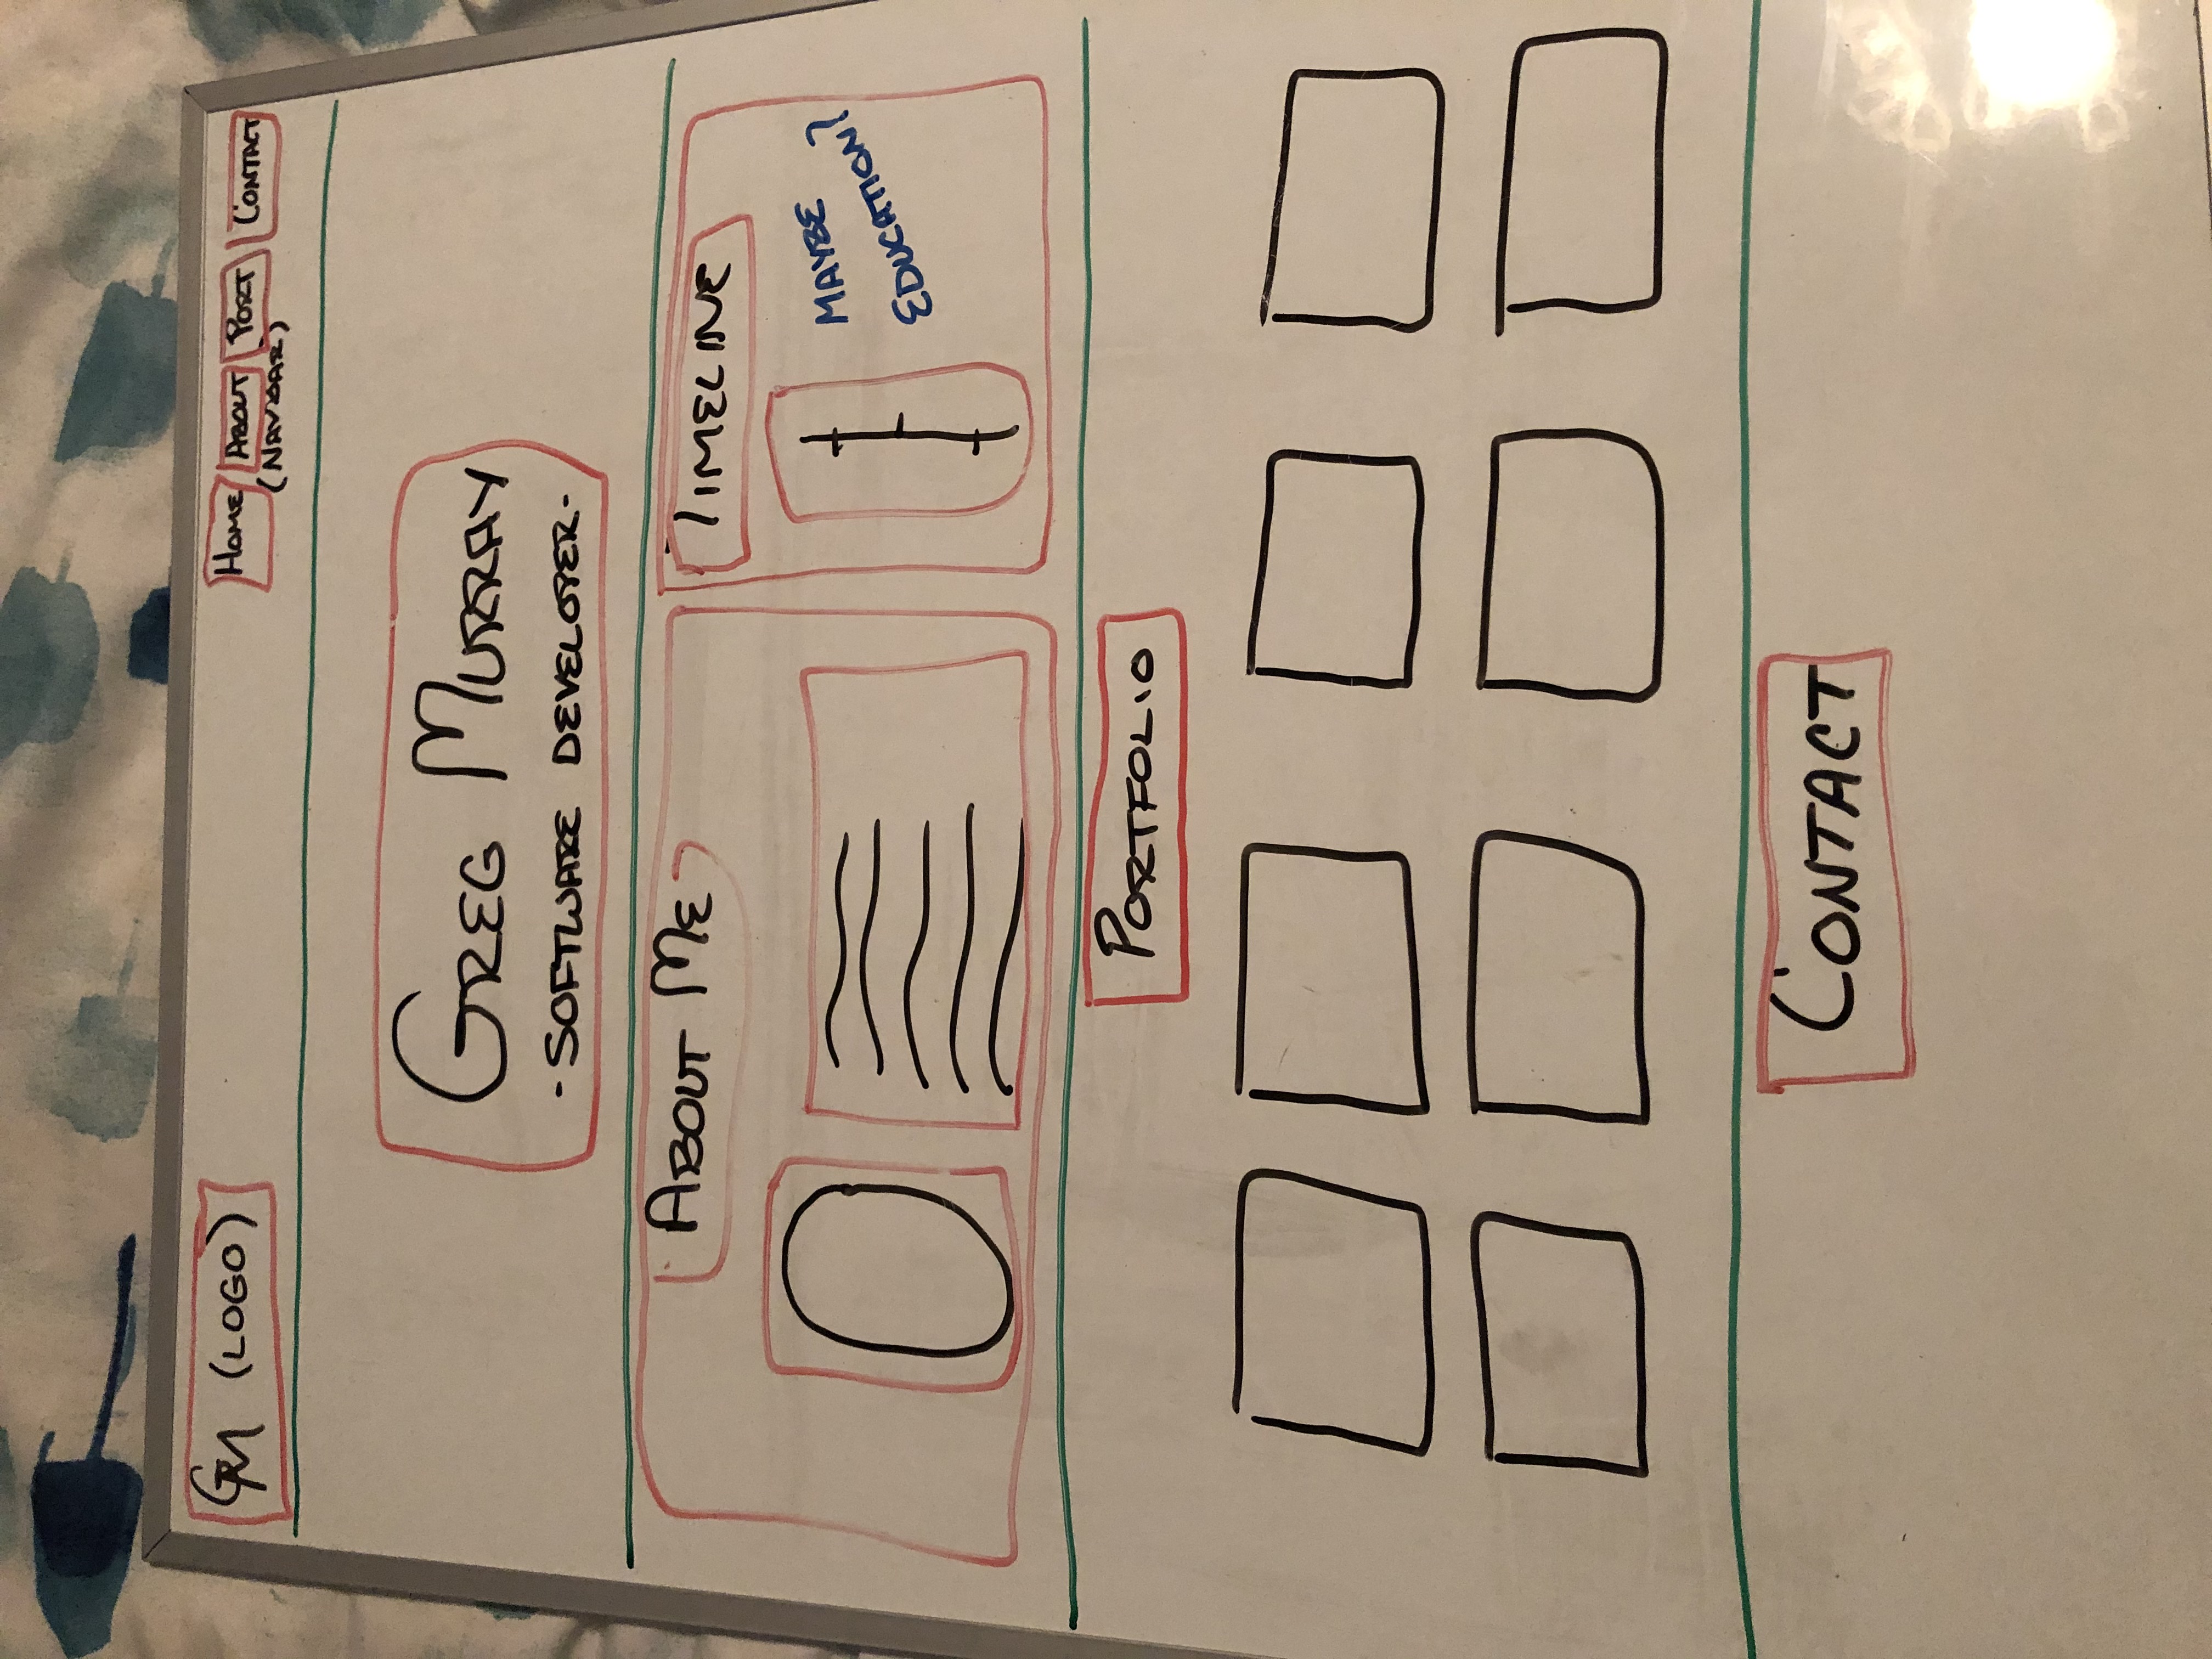 GM (LOGO)
HOME ABOUT PORT CONTACT
(NAVBAR)
GREG MURRAY
-SOFTWARE DEVELOPER-
ABOUT ME
TIMELINE
MAYBE
EDUCATION?
PORTFOLIO
CONTACT